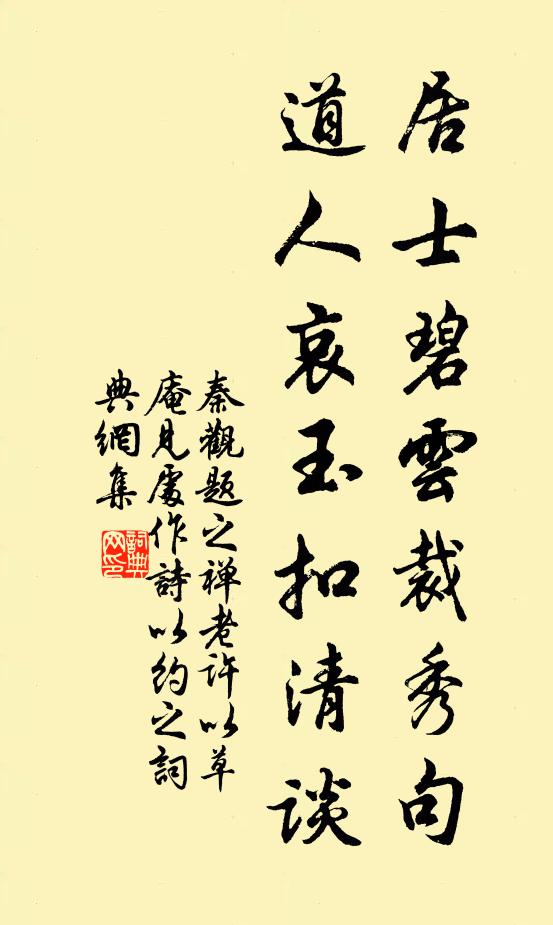 居士碧雲裁秀句
道人哀玉扣清談
秦觀題之禅老許以草
庵見處作詩以約之詞
典網集
詞典
网印